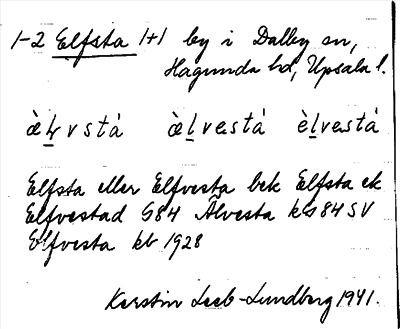 1-2 Elfsta 1+1 by i Dalby sn,
Hagunda hd, Upsala l.
æ̀l̠vstá æ̀l̠vestá èl̠vestá
Elfsta eller Elfvesta bek Elfsta ek
Elfvestad G84 Älvesta k G84 SV
Elfvesta kb 1928
Kerstin Leeb-Lundberg 1941.